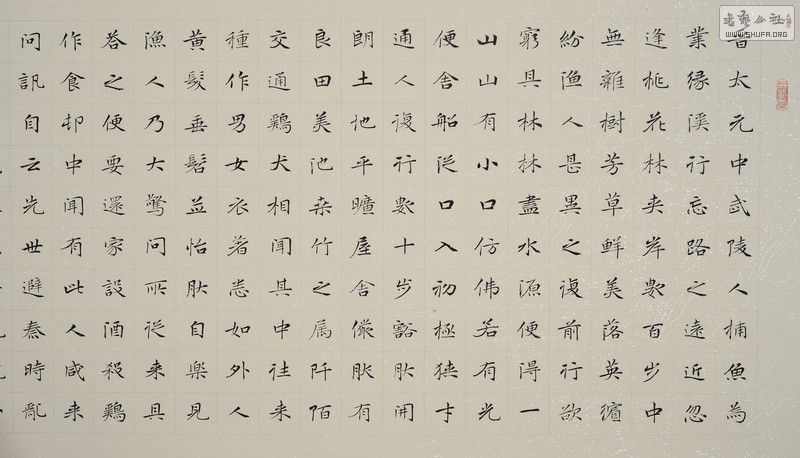 晉太元中武陵人捕魚為
業緣溪行忘路之遠近忽
逢桃花林夾岸數百步中
無雜樹芳草鮮美落英繽
紛漁人甚異之復前行欲
窮其林林盡水源便得一
山山有小口仿佛若有光
便舍船從口入初極狹才
通人復行數十步豁然開
朗土地平曠屋舍儼然有
良田美池桑竹之属阡陌
交通鷄犬相聞其中往來
種作男女衣著悉如外人
黃髮垂髫並怡然自樂見
漁人乃大驚問所從來具
答之便要還家設酒殺鷄
作食邨中聞有此人咸來
問訊自云先世避秦時亂
WWW.SHUFA.ORG